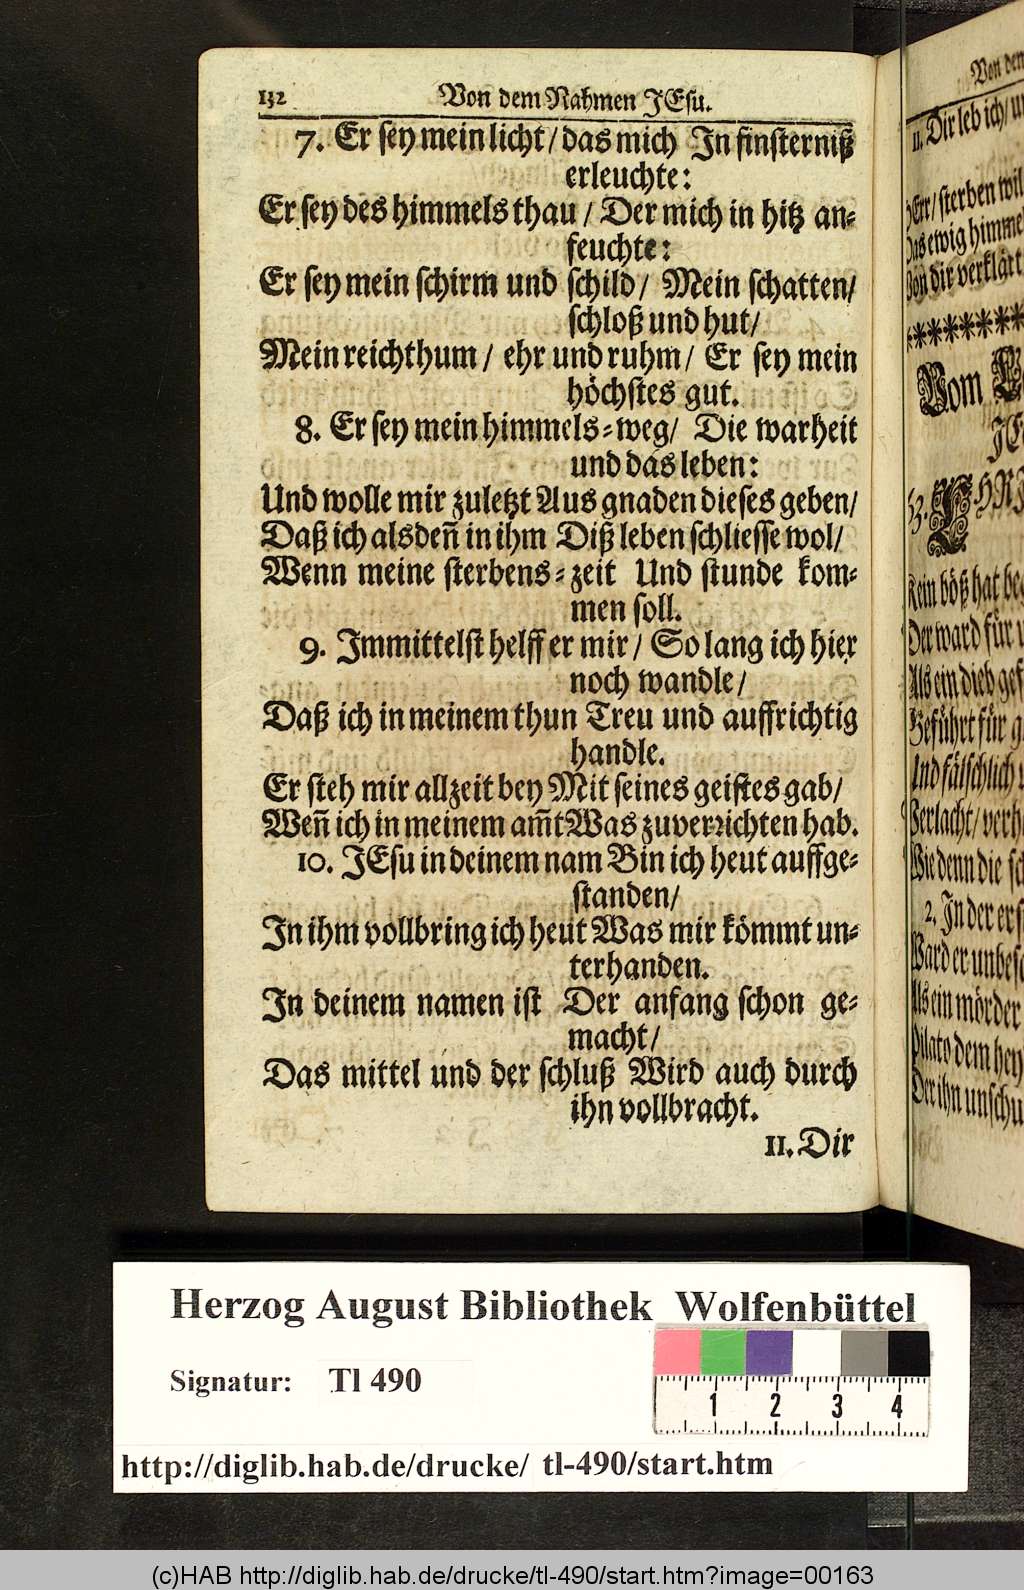 132 Von dem Nahmen JEsu.
7. Er sey mein licht/ das mich In finsterniß
erleuchte:
Er sey des himmels thau / Der mich in hitz an-
feuchte:
Er sey mein schirm und schild/ Mein schatten/
schloß und hut/
Mein reichthum / ehr und ruhm/ Er sey mein
höchstes gut.
8. Er sey mein himmels-weg/ Die warheit
und das leben:
Und wolle mir zuletzt Aus gnaden dieses geben/
Daß ich alsdeñ in ihm Diß leben schliesse wol/
Wenn meine sterbens-zeit Und stunde kom-
men soll.
9. Jmmittelst helff er mir/ So lang ich hier
noch wandle/
Daß ich in meinem thun Treu und auffrichtig
handle.
Er steh mir allzeit bey Mit seines geistes gab/
Weñ ich in meinem am̃t Was zuverrichten hab.
10. JEsu in deinem nam Bin ich heut auffge-
standen/
Jn ihm vollbring ich heut Was mir kömmt un-
terhanden.
Jn deinem namen ist Der anfang schon ge-
macht/
Das mittel und der schluß Wird auch durch
ihn vollbracht.
11. Dir
Von den
11. Dir leb ich/
HErr/ sterben
Das ewig
Von dir verklärt
***
Vom
Kein böß hat
Der ward für
Als ein dieb
Geführt für
Und fälschlich
Verlacht/
Wie denn die
2. Jn der
Ward er
Als ein mörder
Pilato dem
Der ihn
Herzog August Bibliothek Wolfenbüttel
Signatur: Tl 490
1 2 3 4
http://diglib.hab.de/drucke/ tl-490/start.htm
(c)HAB http://diglib.hab.de/drucke/tl-490/start.htm?image=00163